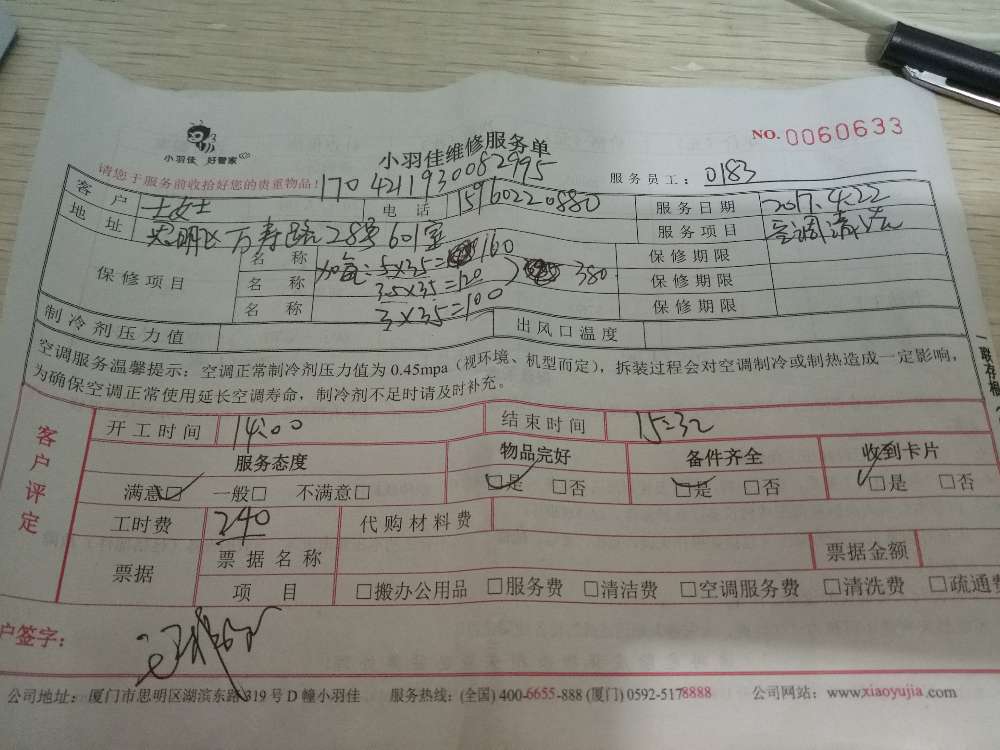 小羽佳 好管家
小羽佳维修服务单
NO. 0060633
请您于服务前收拾好您的贵重物品！
1704211930082995
服务员工： 0183
客户 王女士 电话 15960220880 服务日期 2017.4.22
地址 思明区万寿路28号601室 服务项目 空调清洗
保修项目 名称 加氟：5×35=160 保修期限
名称 3.5×35=120 380 保修期限
名称 3×35=100 保修期限
制冷剂压力值 出风口温度
空调服务温馨提示：空调正常制冷剂压力值为 0.45mpa（视环境、机型而定），拆装过程会对空调制冷或制热造成一定影响，
为确保空调正常使用延长空调寿命，制冷剂不足时请及时补充。
客户评定
开工时间 14:00 结束时间 15:32
服务态度 物品完好 备件齐全 收到卡片
满意□ 一般□ 不满意□ □是 □否 □是 □否 □是 □否
工时费 240 代购材料费
票据 票据名称 票据金额
项目 □搬办公用品 □服务费 □清洁费 □空调服务费 □清洗费 □疏通费
户签字：
公司地址：厦门市思明区湖滨东路 319 号 D 幢小羽佳 服务热线：(全国) 400-6655-888 (厦门) 0592-5178888 公司网站：www.xiaoyujia.com
一联存根